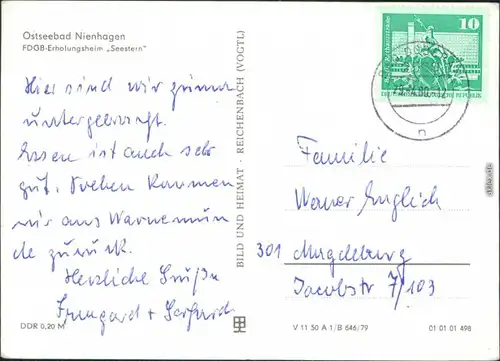 Ostseebad Nienhagen
FDGB-Erholungsheim „Seestern"
Hier sind wir prima
untergebracht.
Essen ist auch sehr
gut. Soeben kommen
wir aus Warnemün
de zurück.
Herzliche Grüße
Irmgard + Gerhard
DDR 0,20 M
BILD UND HEIMAT · REICHENBACH (VOGTL)
10
Familie
Werner Englich
301 Magdeburg
Jacobstr 7/103
V 11 50 A 1/B 646/79
01 01 01 498